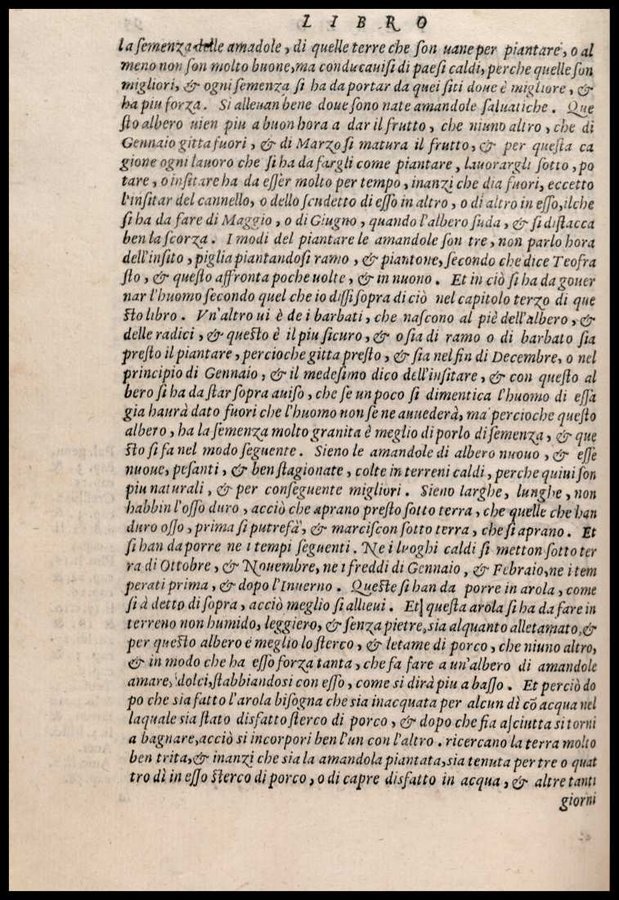 LIBRO
la semenza delle amadole, di quelle terre che son uane per piantare, o al
meno non son molto buone, ma conducauisi di paesi caldi, perche quelle son
migliori, & ogni semenza si ha da portar da quei siti doue è migliore, &
ha piu forza. Si alleuan bene doue sono nate amandole saluatiche. Que
sto albero uien piu a buon hora a dar il frutto, che niuno altro, che di
Gennaio gitta fuori, & di Marzo si matura il frutto, & per questa ca
gione ogni lauoro che si ha da fargli come piantare, lauorargli sotto, po
tare, o insitare ha da esser molto per tempo, inanzi che dia fuori, eccetto
l'insitar del cannello, o dello scudetto di esso in altro, o di altro in esso, ilche
si ha da fare di Maggio, o di Giugno, quando l'albero suda, & si distacca
ben la scorza. I modi del piantare le amandole son tre, non parlo hora
dell'insito, piglia piantandosi ramo, & piantone, secondo che dice Teofra
sto, & questo affronta poche uolte, & in nuono. Et in ciò si ha da gouer
nar l'huomo secondo quel che io dissi sopra di ciò nel capitolo terzo di que
sto libro. Vn'altro ui è de i barbati, che nascono al piè dell'albero, &
delle radici, & questo è il piu sicuro, & o sia di ramo o di barbato sia
presto il piantare, percioche gitta presto, & sia nel fin di Decembre, o nel
principio di Gennaio, & il medesimo dico dell'insitare, & con questo al
bero si ha da star sopra auiso, che se un poco si dimentica l'huomo di essa
gia haurà dato fuori che l'huomo non se ne auuederà, ma percioche questo
albero, ha la semenza molto granita è meglio di porlo di semenza, & que
sto si fa nel modo seguente. Sieno le amandole di albero nuouo, & esse
nuoue, pesanti, & ben stagionate, colte in terreni caldi, perche quiui son
piu naturali, & per conseguente migliori. Sieno larghe, lunghe, non
habbin l'osso duro, acciò che aprano presto sotto terra, che quelle che han
duro osso, prima si putrefà, & marciscon sotto terra, che si aprano. Et
si han da porre ne i tempi seguenti. Ne i luoghi caldi si metton sotto ter
ra di Ottobre, & Nouembre, ne i freddi di Gennaio, & Febraio, ne i tem
perati prima, & dopo l'Inuerno. Queste si han da porre in arola, come
si à detto di sopra, acciò meglio si alleui. Et questa arola si ha da fare in
terreno non humido, leggiero, & senza pietre, sia alquanto alletamato, &
per questo albero è meglio lo sterco, & letame di porco, che niuno altro,
& in modo che ha esso forza tanta, che fa fare a un'albero di amandole
amare, dolci, stabbiandosi con esso, come si dirà piu a basso. Et perciò do
po che sia fatto l'arola bisogna che sia inacquata per alcun dì cõ acqua nel
laquale sia stato disfatto sterco di porco, & dopo che sia asciutta si torni
a bagnare, acciò si incorpori ben l'un con l'altro. ricercano la terra molto
ben trita, & inanzi che sia la amandola piantata, sia tenuta per tre o quat
tro dì in esso sterco di porco, o di capre disfatto in acqua, & altre tanti
giorni